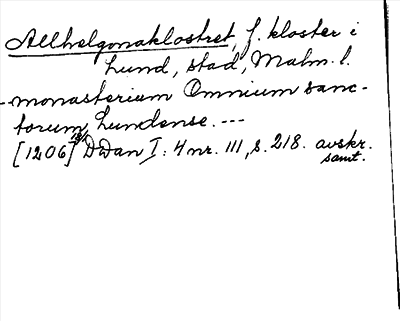 Allhelgonaklostret, f. kloster i
Lund, stad, Malm. l.
- monasterium Omnium sanc-
torum, Lundense. ---
[1206] DDan I: 4 nr. 111, s. 218. avskr.
samt.